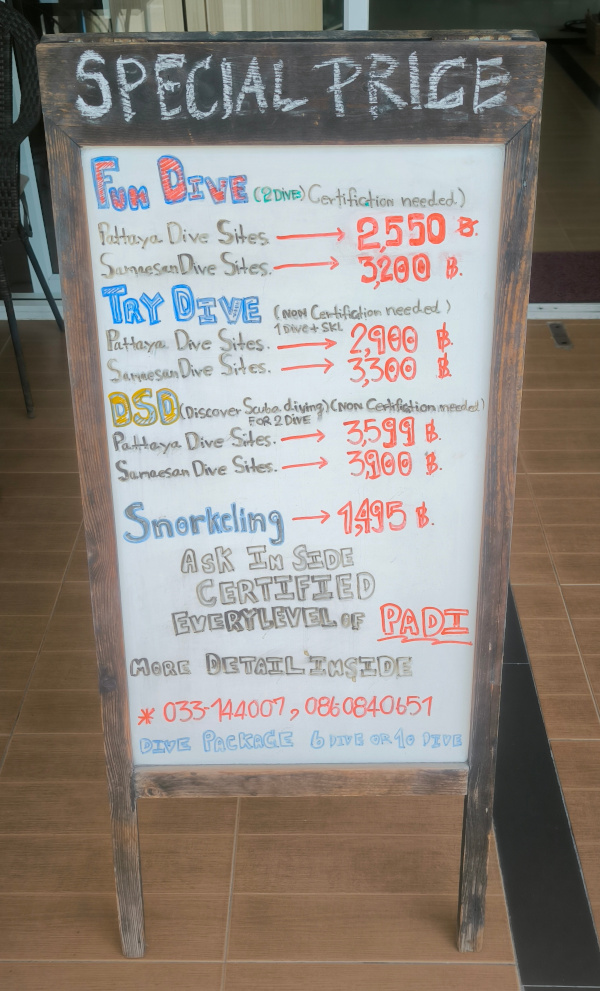 SPECIAL PRICE
Fun Dive (2 Dive) Certification needed)
Pattaya Dive Sites. → 2,550 ฿.
Samaesan Dive Sites. → 3,200 ฿.
TRY DIVE (NON Certification needed)
1 Dive + SKL
Pattaya Dive Sites. → 2,900 ฿.
Samaesan Dive Sites. → 3,300 ฿.
DSD (Discover Scuba diving) (NON Certifiction needed)
FOR 2 DIVE
Pattaya Dive Sites. → 3,599 ฿.
Samaesan Dive Sites. → 3,900 ฿.
Snorkeling → 1,495 ฿.
ASK IN SIDE
CERTIFIED
EVERY LEVEL OF PADI
MORE DETAIL INSIDE
* 033-144007, 0860840651
DIVE PACKAGE 6 DIVE OR 10 DIVE